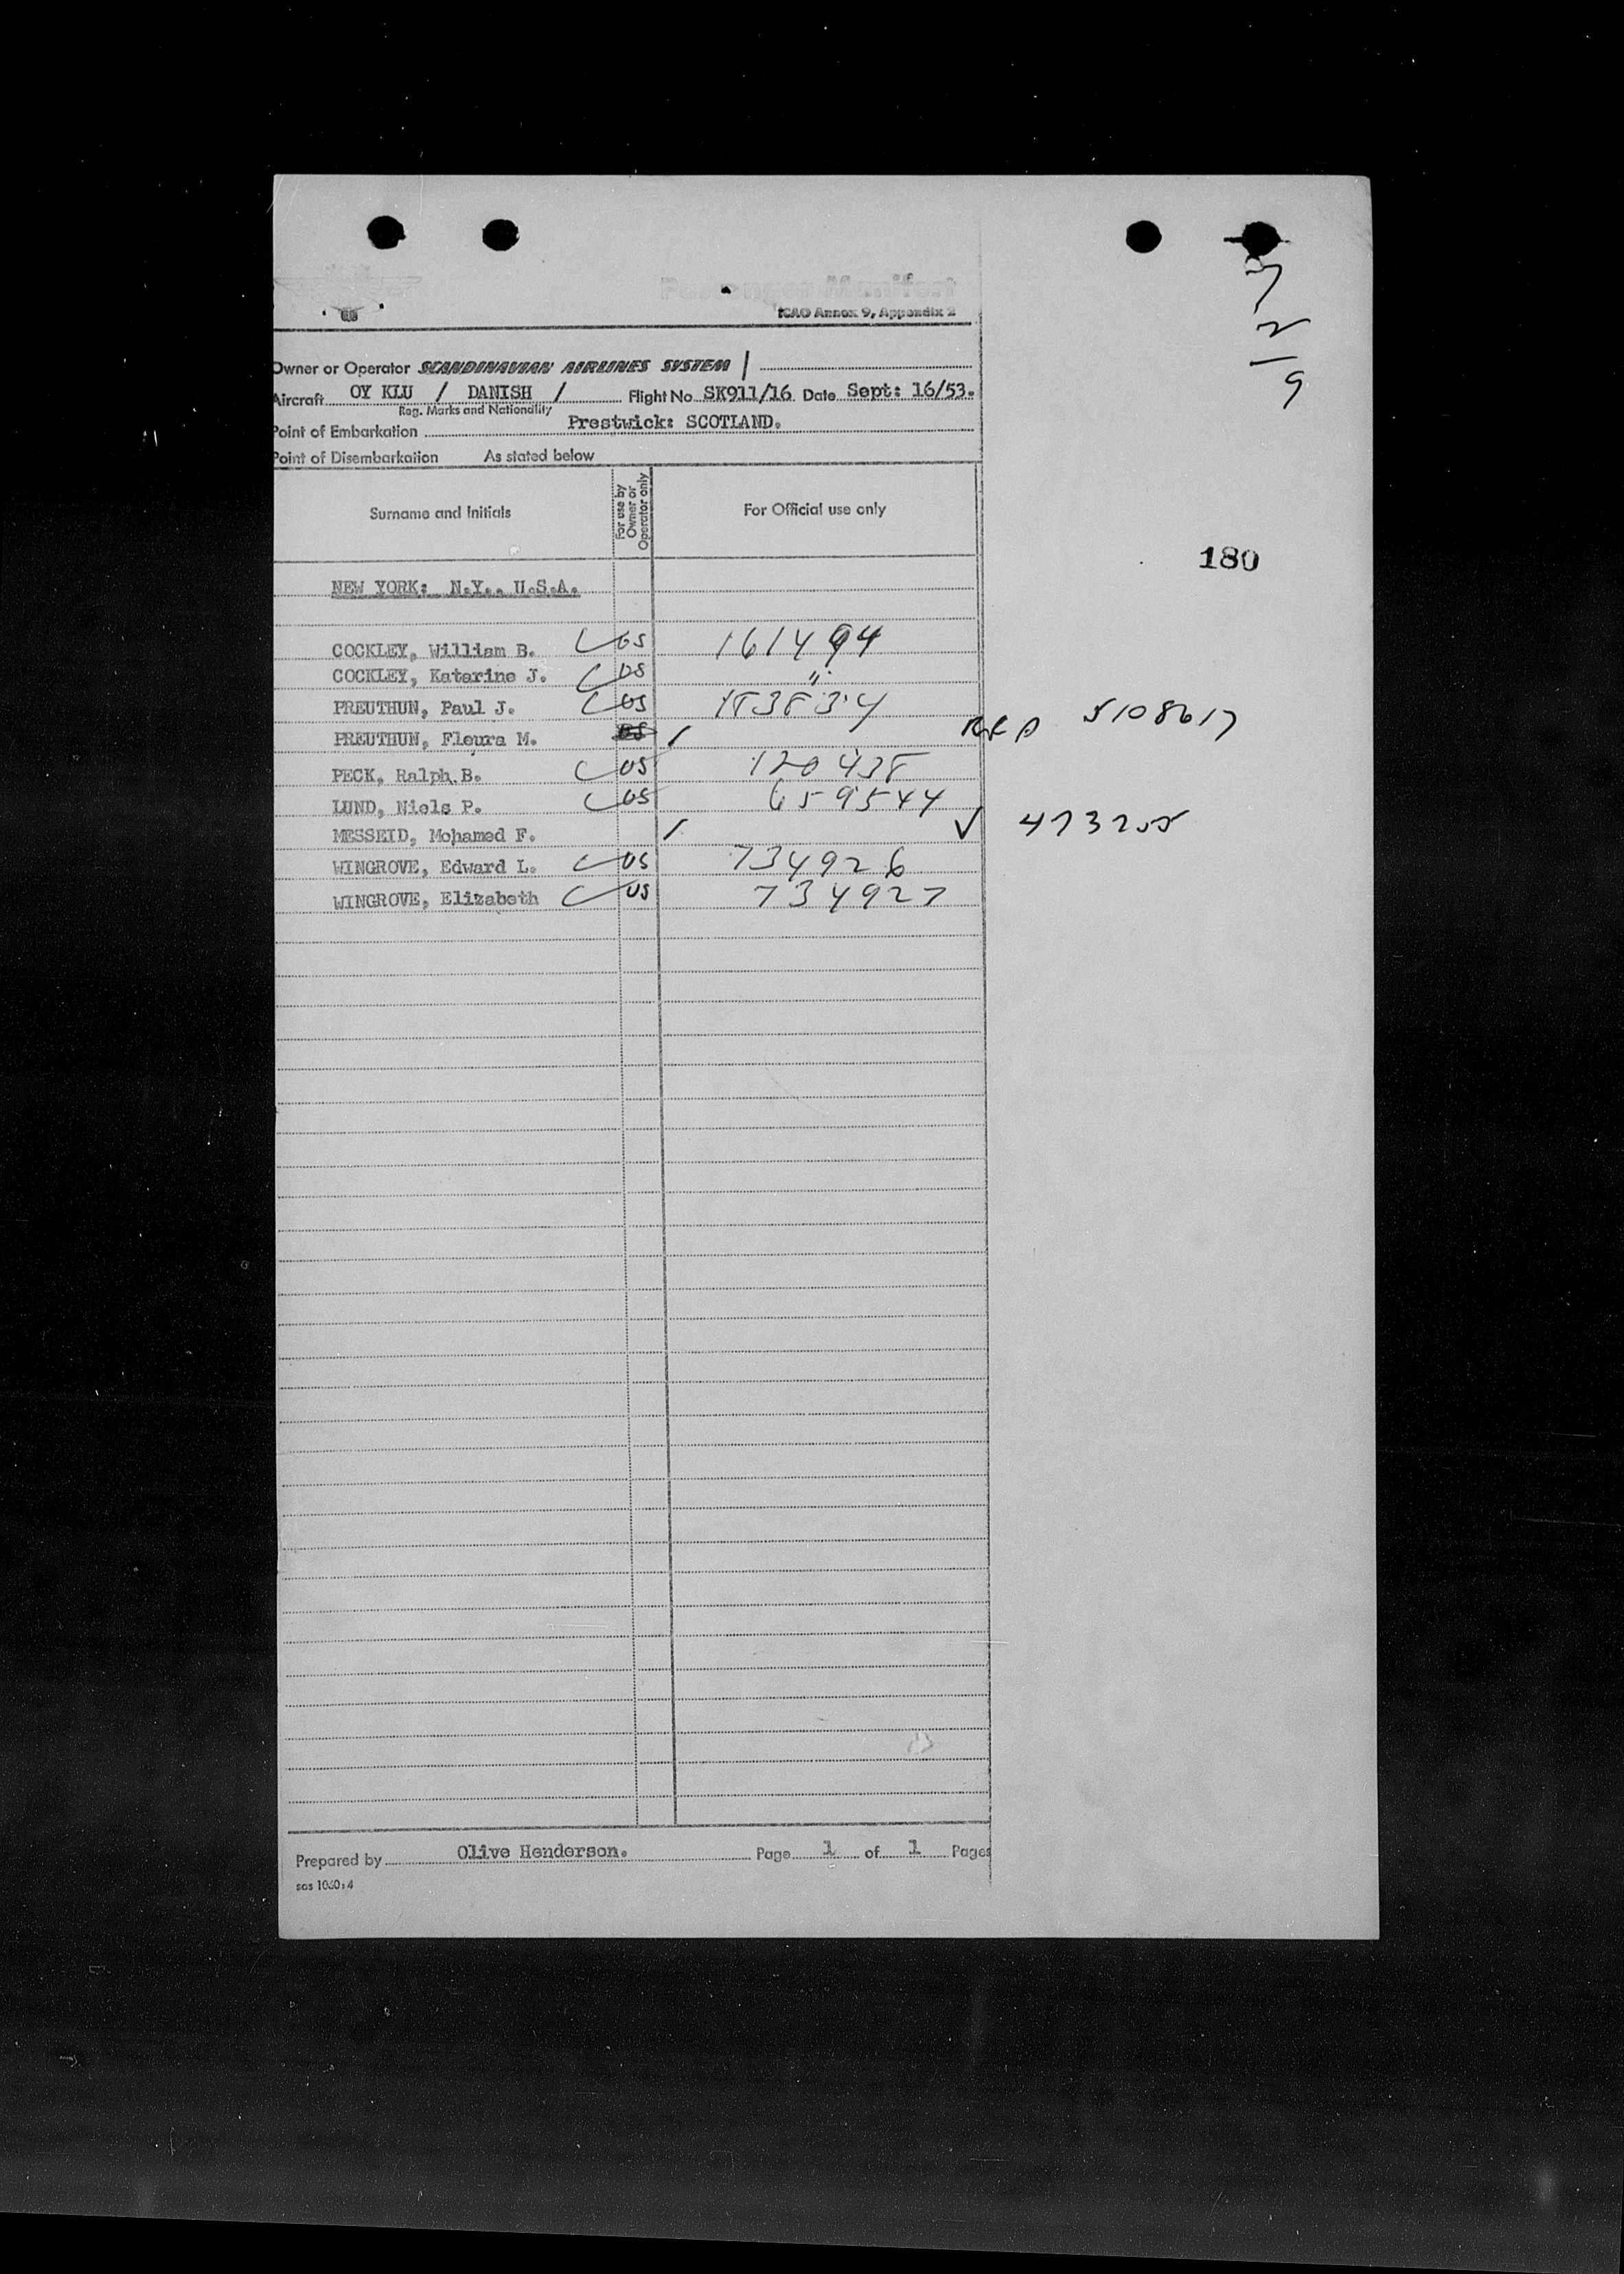 Passenger Manifest
ICAO Annex 9, Appendix 2
Owner or Operator SCANDINAVIAN AIRLINES SYSTEM
Aircraft OY KLU / DANISH / Flight No SK911/16 Date Sept: 16/53.
Reg. Marks and Nationality
Point of Embarkation Prestwick: SCOTLAND.
Point of Disembarkation As stated below
Surname and Initials
For use by Owner or Operator only
For Official use only
180
NEW YORK: N.Y., U.S.A.
COCKLEY, William B. US 161494
COCKLEY, Katarine J. US "
PREUTHUN, Paul J. US 183834
PREUTHUN, Fleura M. US 5108617
PECK, Ralph B. US 120438
LUND, Niels P. US 659544
MESSEID, Mohamed F.
WINGROVE, Edward L. US 734926
WINGROVE, Elizabeth US 734927
7
2
9
Prepared by Olive Henderson. Page 1 of 1 Pages
sas 1030:4